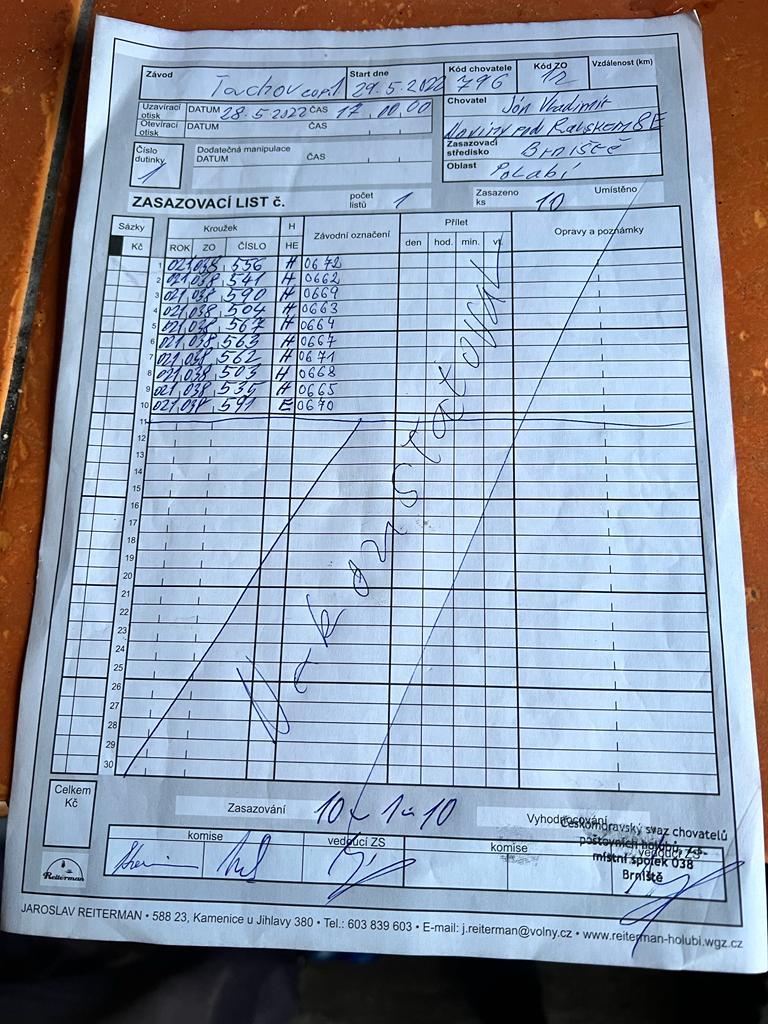 Závod Tachov Start dne 29.5.2022 Kód chovatele 796 Kód ZO 12 Vzdálenost (km)
Uzavírací otisk DATUM 28.5.2022 ČAS 17 00 00
Otevírací otisk DATUM ČAS
Chovatel Ján Vladimír
Noviny pod Ralskem
Číslo dutinky 1 Dodatečná manipulace DATUM ČAS
Zasazovací středisko Brniště
Oblast Polabí
ZASAZOVACÍ LIST č. počet listů 1 Zasazeno ks 10 Umístěno
Sázky Kroužek H Závodní označení Přílet Opravy a poznámky
Kč ROK ZO ČÍSLO HE den hod. min. vt.
1 021 038 556 H 0672
2 021 038 541 H 0662
3 021 038 590 H 0669
4 021 038 504 H 0663
5 021 038 567 H 0664
6 021 038 563 H 0667
7 021 038 562 H 0671
8 021 038 503 H 0668
9 021 038 535 H 0665
10 021 038 591 E 0670
11
12
13
14
15
16
17
18
19
20
21
22
23
24
25
26
27
28
29
30
Nekonstatoval
Celkem Kč
Zasazování 10 x 1 à 10 Vyhodnocování
komise vedoucí ZS komise vedoucí ZS
Českomoravský svaz chovatelů
poštovních holubů, z.s.
místní spolek 038
Brniště
Reiterman
JAROSLAV REITERMAN • 588 23, Kamenice u Jihlavy 380 • Tel.: 603 839 603 • E-mail: j.reiterman@volny.cz • www.reiterman-holubi.wgz.cz